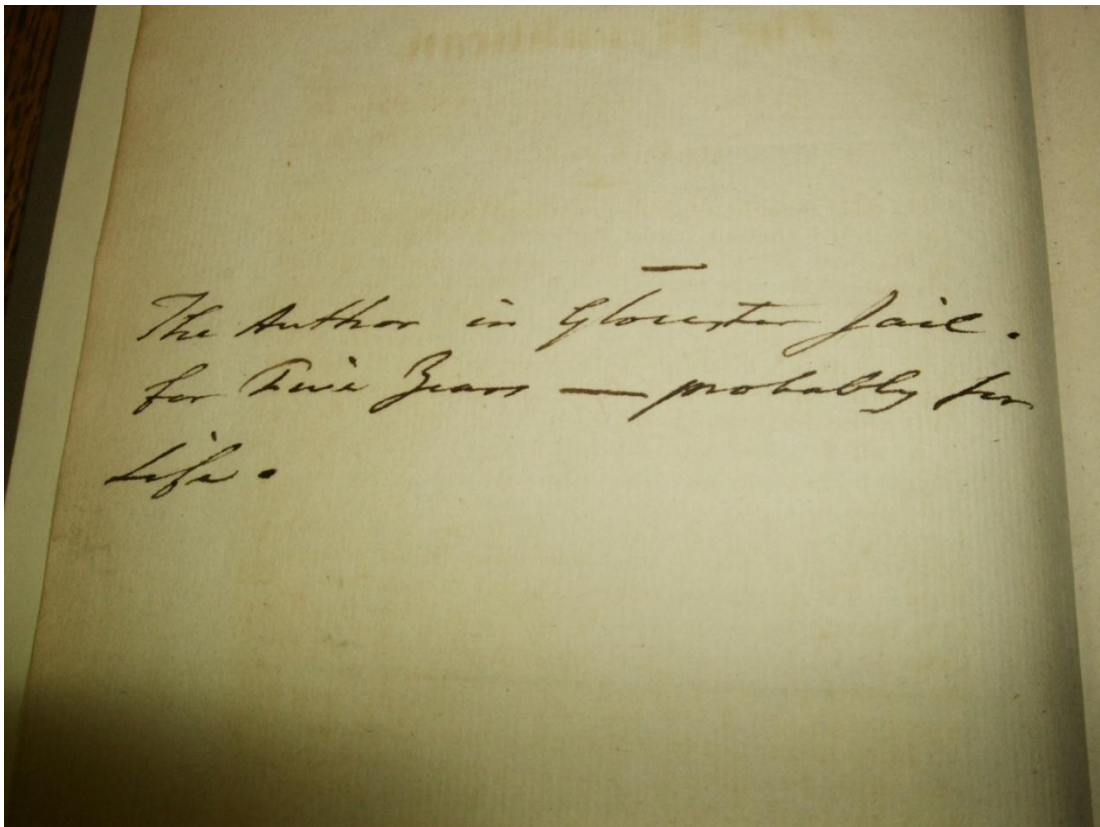 The Author in Gloucester Jail.
for Five Years — probably for
Life.